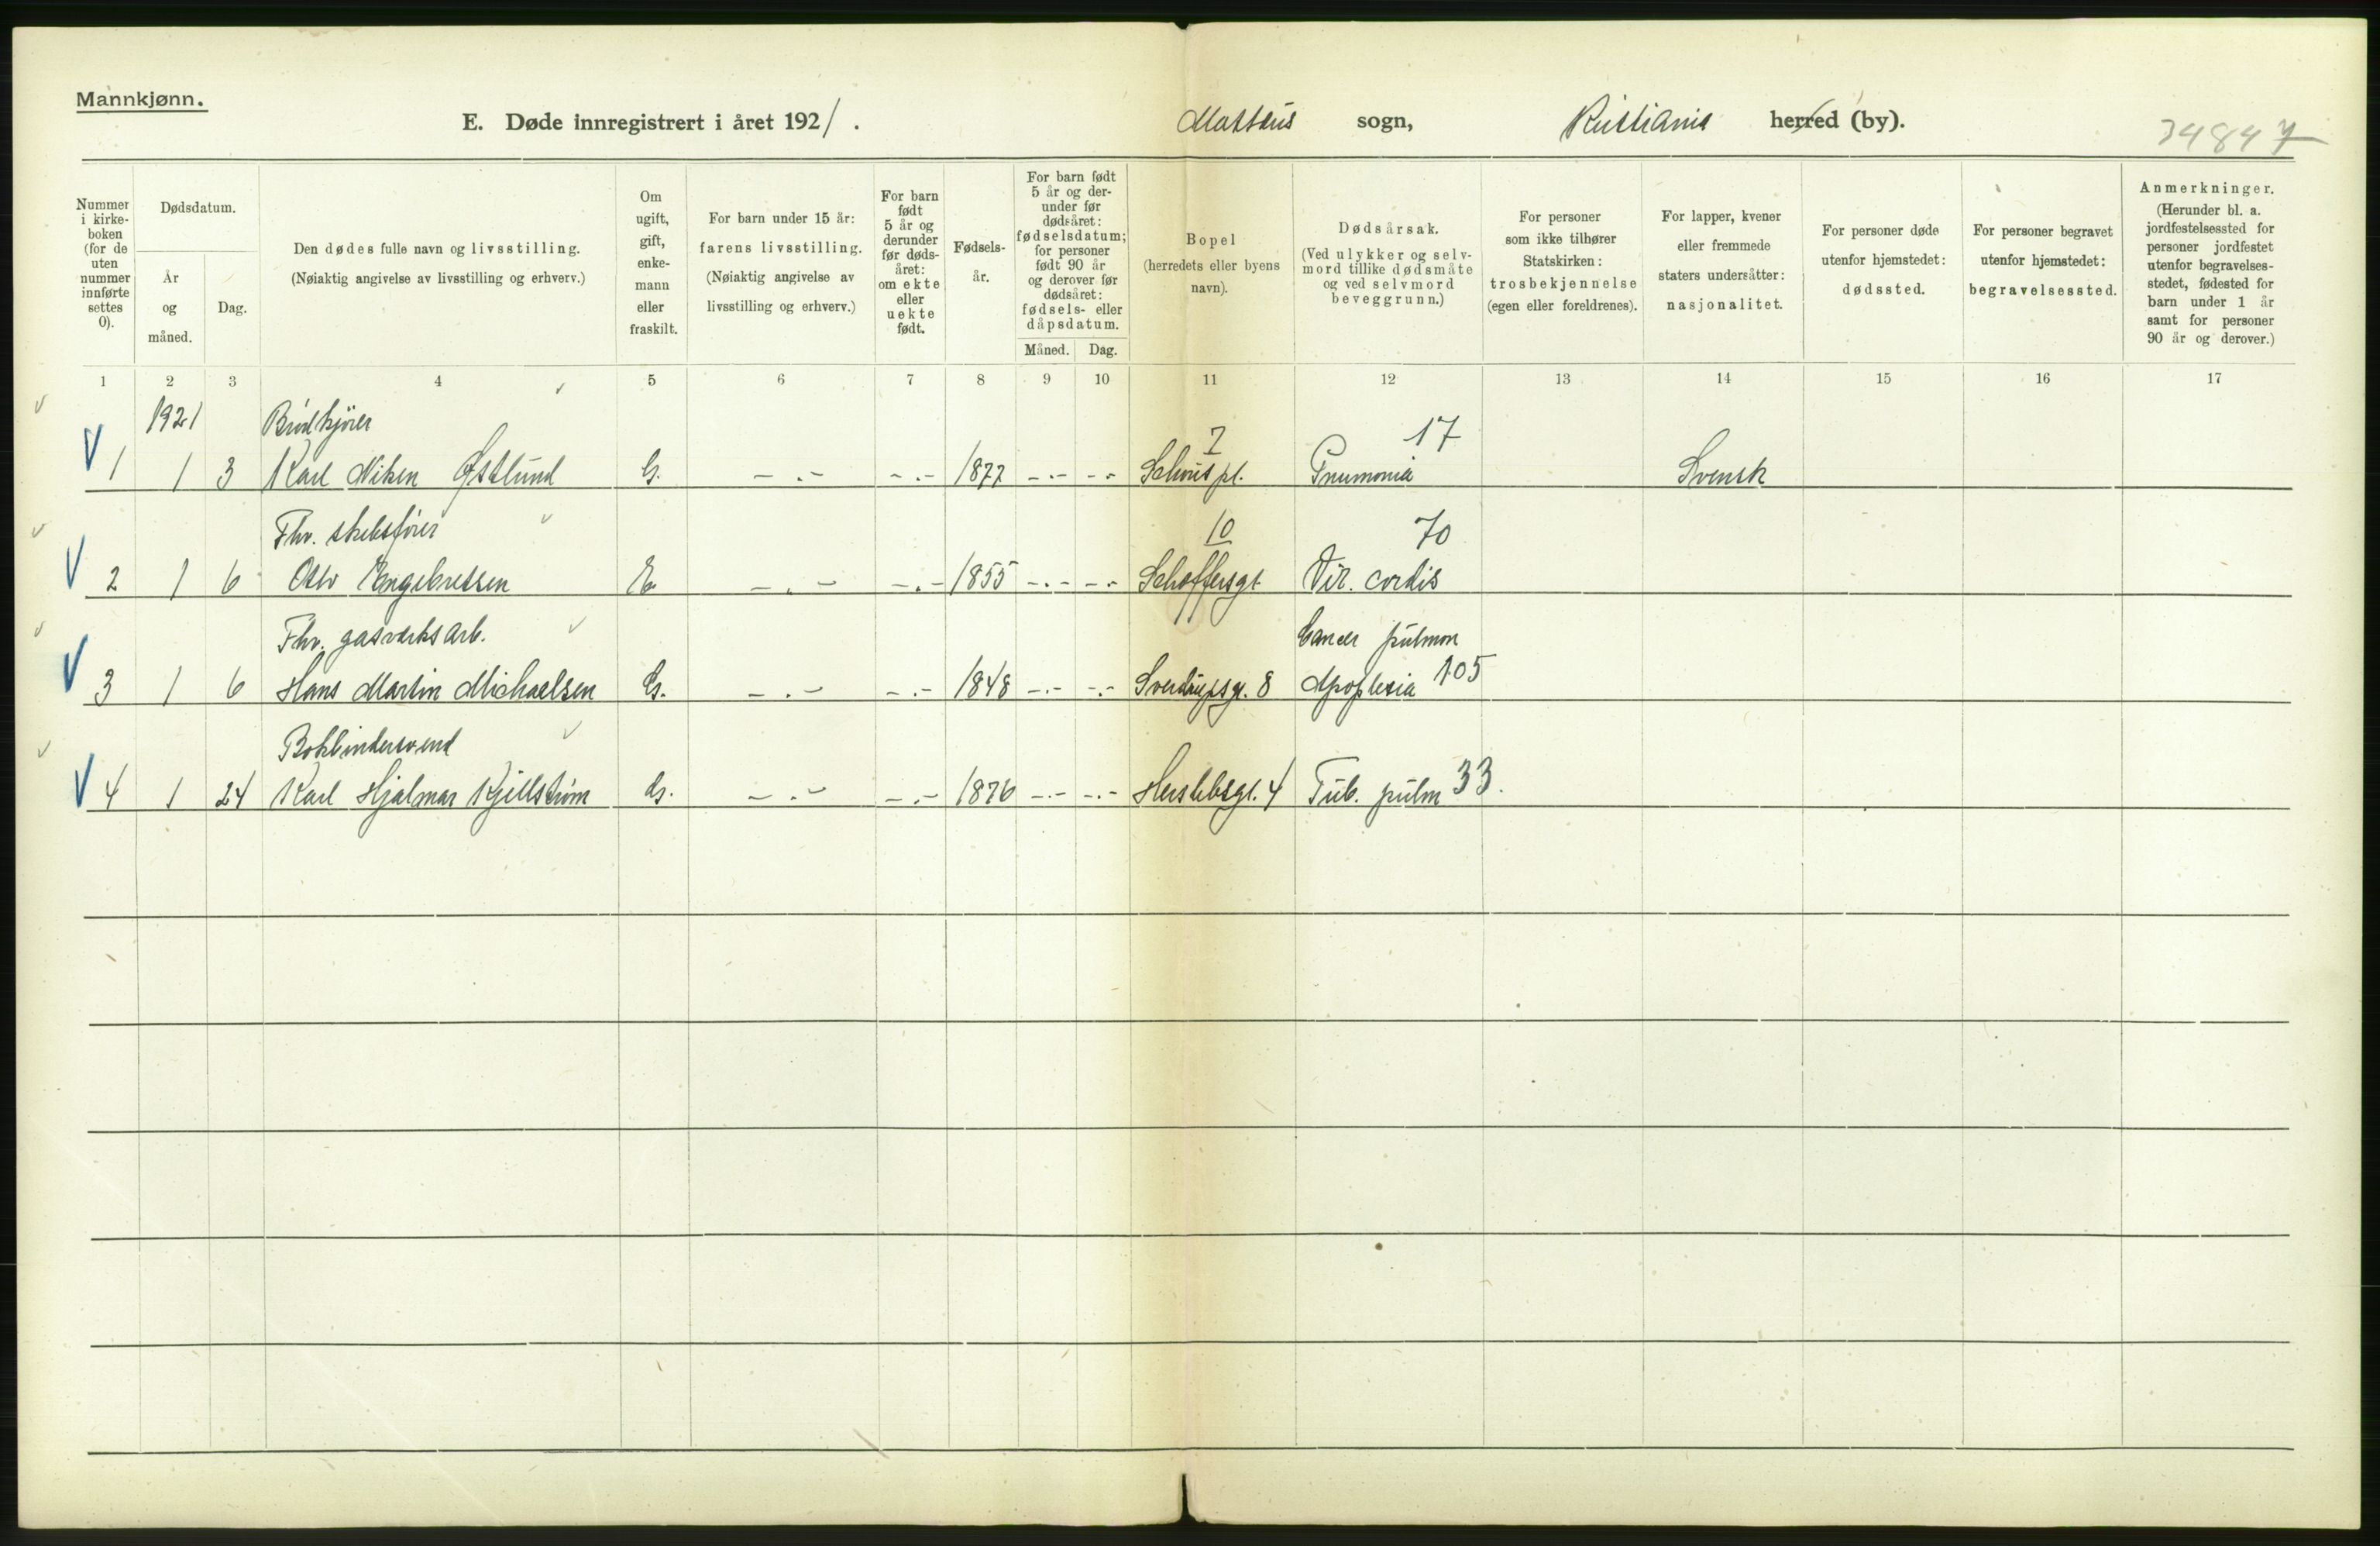 Mannkjønn.
E. Døde innregistrert i året 1921.
Matteus sogn, Kristiania herred (by).
34847
Nummer i kirkeboken (for de uten nummer innførte settes 0).
Dødsdatum.
År og måned.
Dag.
Den dødes fulle navn og livsstilling.
(Nøiaktig angivelse av livsstilling og erhverv.)
Om ugift, gift, enkemann eller fraskilt.
For barn under 15 år:
farens livsstilling.
(Nøiaktig angivelse av livsstilling og erhverv.)
For barn født 5 år og derunder før dødsåret: om ekte eller uekte født.
Fødselsår.
For barn født 5 år og derunder før dødsåret: fødselsdatum; for personer født 90 år og derover før dødsåret: fødsels- eller dåpsdatum.
Måned. Dag.
Bopel
(herredets eller byens navn).
Dødsårsak.
(Ved ulykker og selvmord tillike dødsmåte og ved selvmord beveggrunn.)
For personer som ikke tilhører Statskirken:
trosbekjennelse
(egen eller foreldrenes).
For lapper, kvener eller fremmede staters undersåtter:
nasjonalitet.
For personer døde utenfor hjemstedet:
dødssted.
For personer begravet utenfor hjemstedet:
begravelsessted.
Anmerkninger.
(Herunder bl. a. jordfestelsessted for personer jordfestet utenfor begravelsesstedet, fødested for barn under 1 år samt for personer 90 år og derover.)
1 2 3 4 5 6 7 8 9 10 11 12 13 14 15 16 17
1921 Brødkjører 7 17
1 1 3 Karl Østlund G. -.- -.- 1877 -.- -.- Schous pl. Pnumonia Svensk
Fhv. skibsfører 10 70
2 1 6 Otto Engebretsen E. -.- -.- 1855 -.- -.- Vit. cordis
Fhv. gasverksarb. Cancer pulmon
3 1 6 Hans Martin Michaelsen G. -.- -.- 1848 -.- -.- Sverdrupsgt. 8 Apoplexia 105
Bokbindersvend
4 1 24 Karl Hjalmar Kjellstrøm G. -.- -.- 1876 -.- -.- Herslebsgt. 4 Tub. pulm 33.